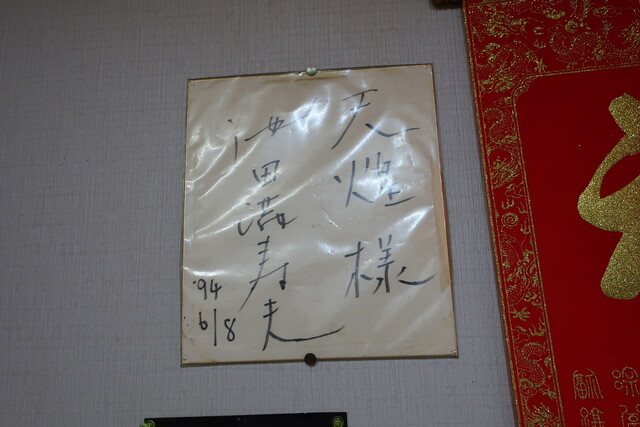 天煌様
池田満寿夫
'94
6/8